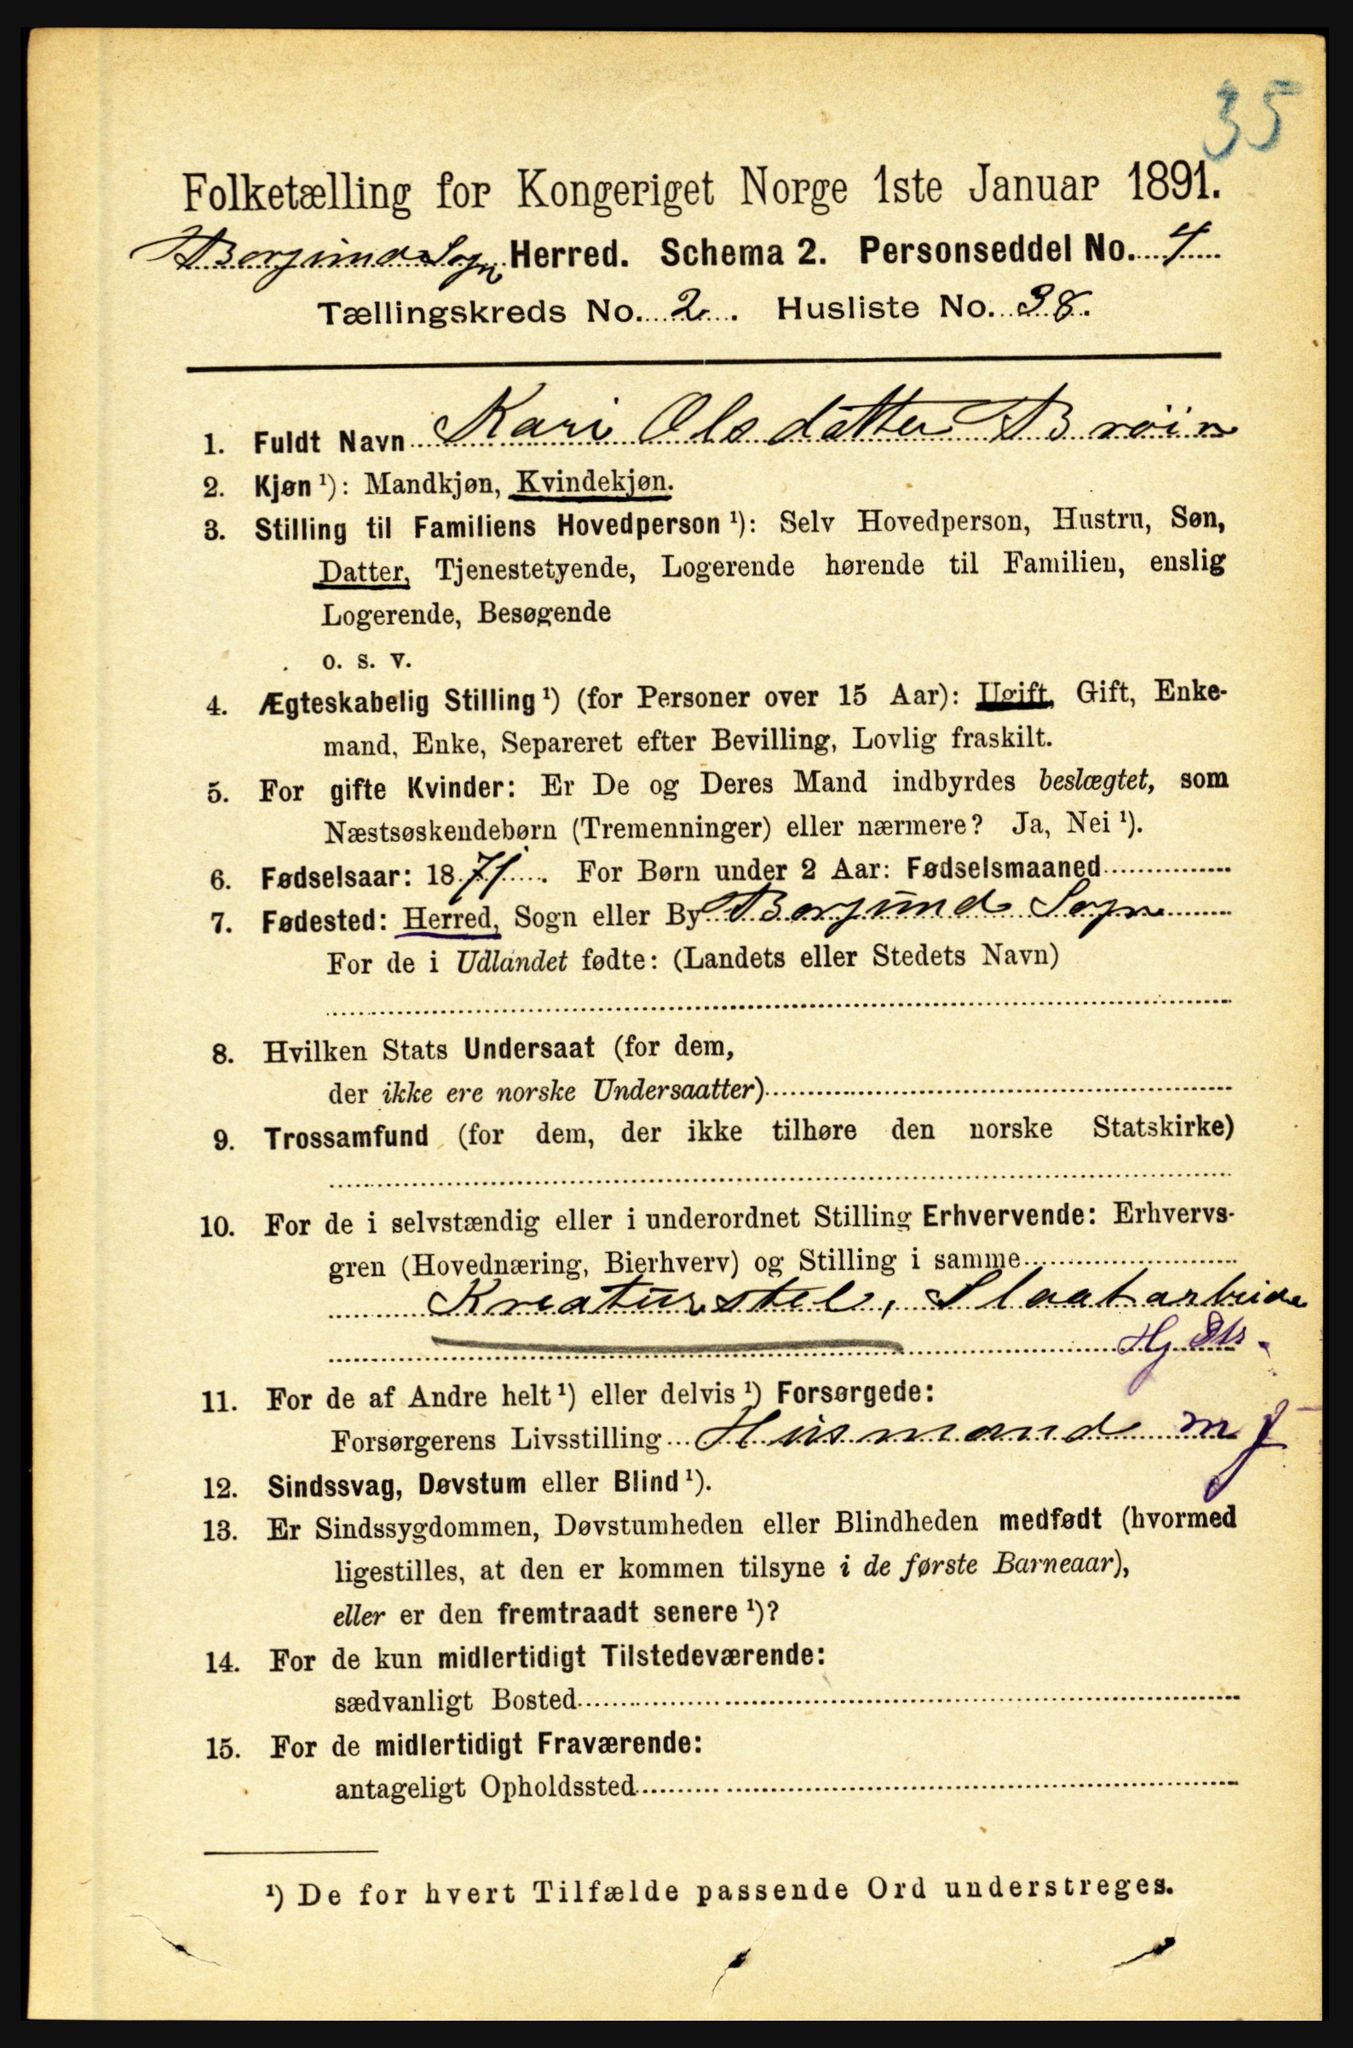 35
Folketælling for Kongeriget Norge 1ste Januar 1891.
Borgund Sogn Herred. Schema 2. Personseddel No. 4
Tællingskreds No. 2. Husliste No. 38.
1. Fuldt Navn Kari Olsdatter Brøin
2. Kjøn ¹): Mandkjøn, Kvindekjøn.
3. Stilling til Familiens Hovedperson ¹): Selv Hovedperson, Hustru, Søn,
Datter, Tjenestetyende, Logerende hørende til Familien, enslig
Logerende, Besøgende
o. s. v.
4. Ægteskabelig Stilling ¹) (for Personer over 15 Aar): Ugift, Gift, Enke-
mand, Enke, Separeret efter Bevilling, Lovlig fraskilt.
5. For gifte Kvinder: Er De og Deres Mand indbyrdes beslægtet, som
Næstsøskendebørn (Tremenninger) eller nærmere? Ja, Nei ¹).
6. Fødselsaar: 1871. For Børn under 2 Aar: Fødselsmaaned
7. Fødested: Herred, Sogn eller By Borgund Sogn
For de i Udlandet fødte: (Landets eller Stedets Navn)
8. Hvilken Stats Undersaat (for dem,
der ikke ere norske Undersaatter)
9. Trossamfund (for dem, der ikke tilhøre den norske Statskirke)
10. For de i selvstændig eller i underordnet Stilling Erhvervende: Erhvervs-
gren (Hovednæring, Bierhverv) og Stilling i samme
Kreaturstel, Slaatarbeide
Hj Dtr.
11. For de af Andre helt ¹) eller delvis ¹) Forsørgede:
Forsørgerens Livsstilling Husmand m J
12. Sindssvag, Døvstum eller Blind ¹).
13. Er Sindssygdommen, Døvstumheden eller Blindheden medfødt (hvormed
ligestilles, at den er kommen tilsyne i de første Barneaar),
eller er den fremtraadt senere ¹)?
14. For de kun midlertidigt Tilstedeværende:
sædvanligt Bosted
15. For de midlertidigt Fraværende:
antageligt Opholdssted
¹) De for hvert Tilfælde passende Ord understreges.